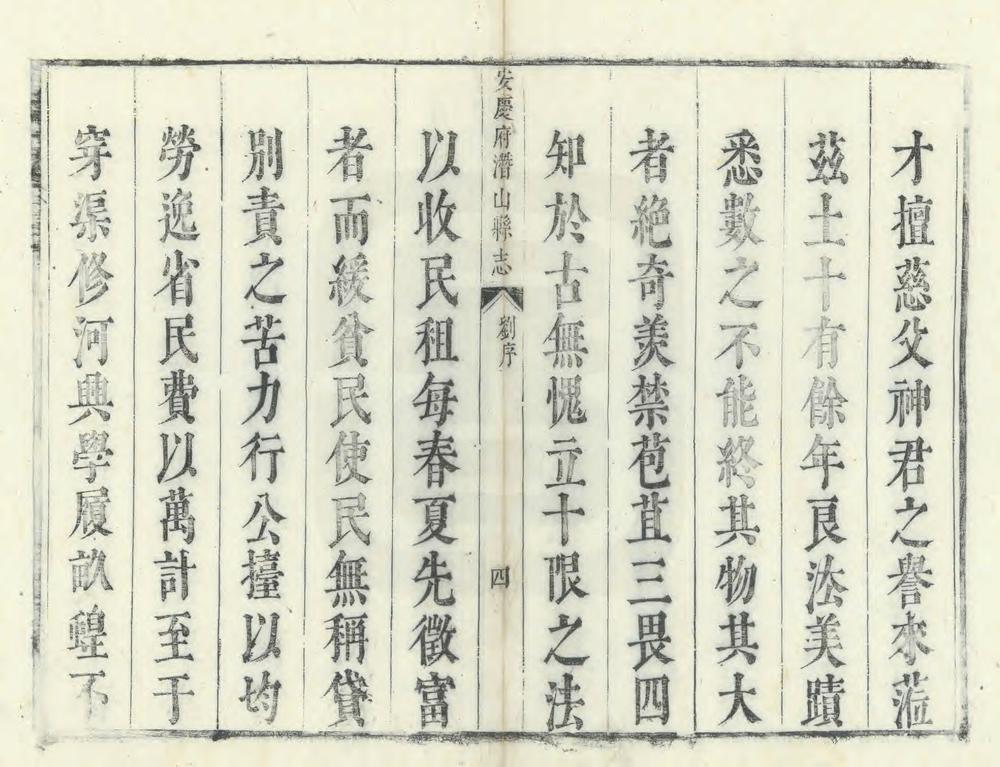 才擅慈父神君之譽來蒞
茲土十有餘年良法美蹟
悉數之不能終其物其大
者絶奇羨禁苞苴三畏四
知於古無愧立十限之法
安慶府潛山縣志 劉序 四
以收民租每春夏先徵富
者而緩貧民使民無稱貸
別責之苦力行公擡以均
勞逸省民費以萬計至于
穿渠修河興學履畝蝗不